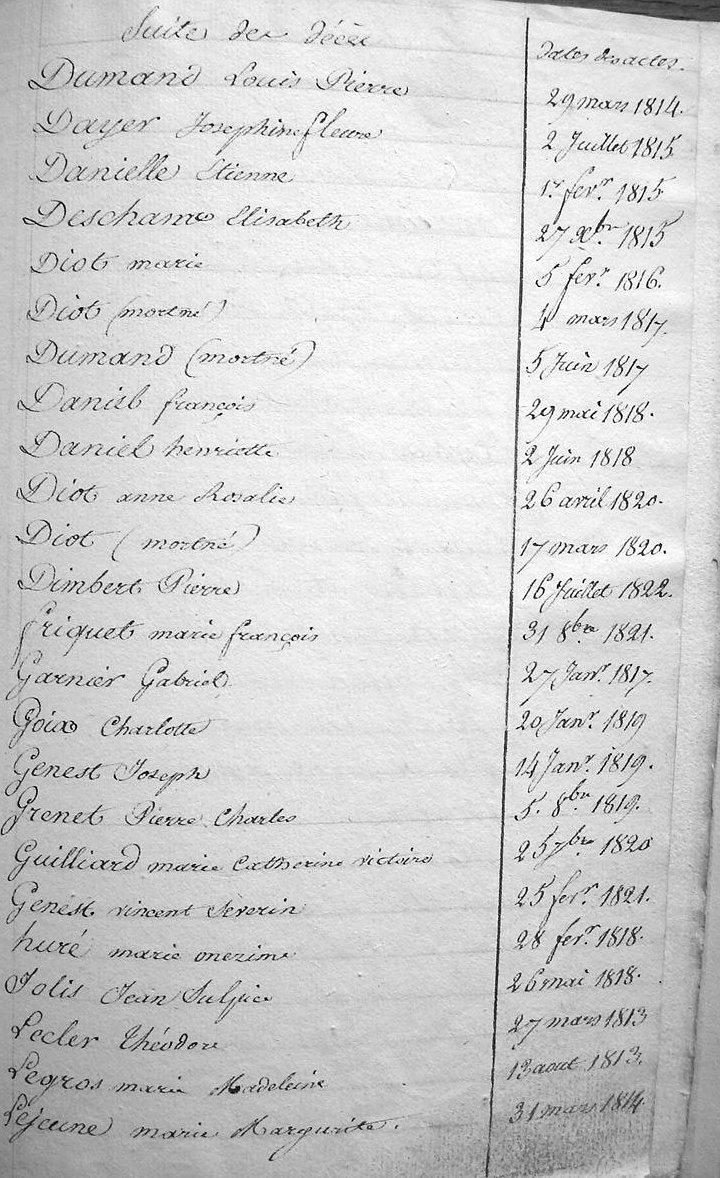 Suite des décès
Dates des actes.
Dumand Louis Pierre 29 mars 1814.
Dayer Josephine fleure 2 Juillet 1815
Danielle Etienne 17 fevr. 1815
Deschams Elisabeth 27 Xbre 1815
Diot marie 5 fevr. 1816.
Diot (mortné) 4 mars 1817.
Dumand (mortné) 5 Juin 1817
Daniel françois 29 mai 1818.
Daniel henriette 2 Juin 1818
Diot anne Rosalie 26 avril 1820.
Diot (mortné) 17 mars 1820.
Dimbert Pierre 16 Juillet 1822.
friquet marie françois 31 8bre 1821.
Garnier Gabriel 27 Janr. 1817.
Goix Charlotte 20 Janr. 1819
Genest Joseph 14 Janr. 1819.
Grenet Pierre Charles 5. 8bre 1819.
Guilliard marie Catherine victoire 25 7bre 1820
Genest vincent Severin 25 fevr. 1821.
huré marie onezime 28 fevr. 1818.
Jolis Jean Sulpice 26 mai 1818.
Lecler Théodore 27 mars 1813
Legros marie Madeleine 13 aout 1813.
Lejeune marie Margurite. 31 mars 1814